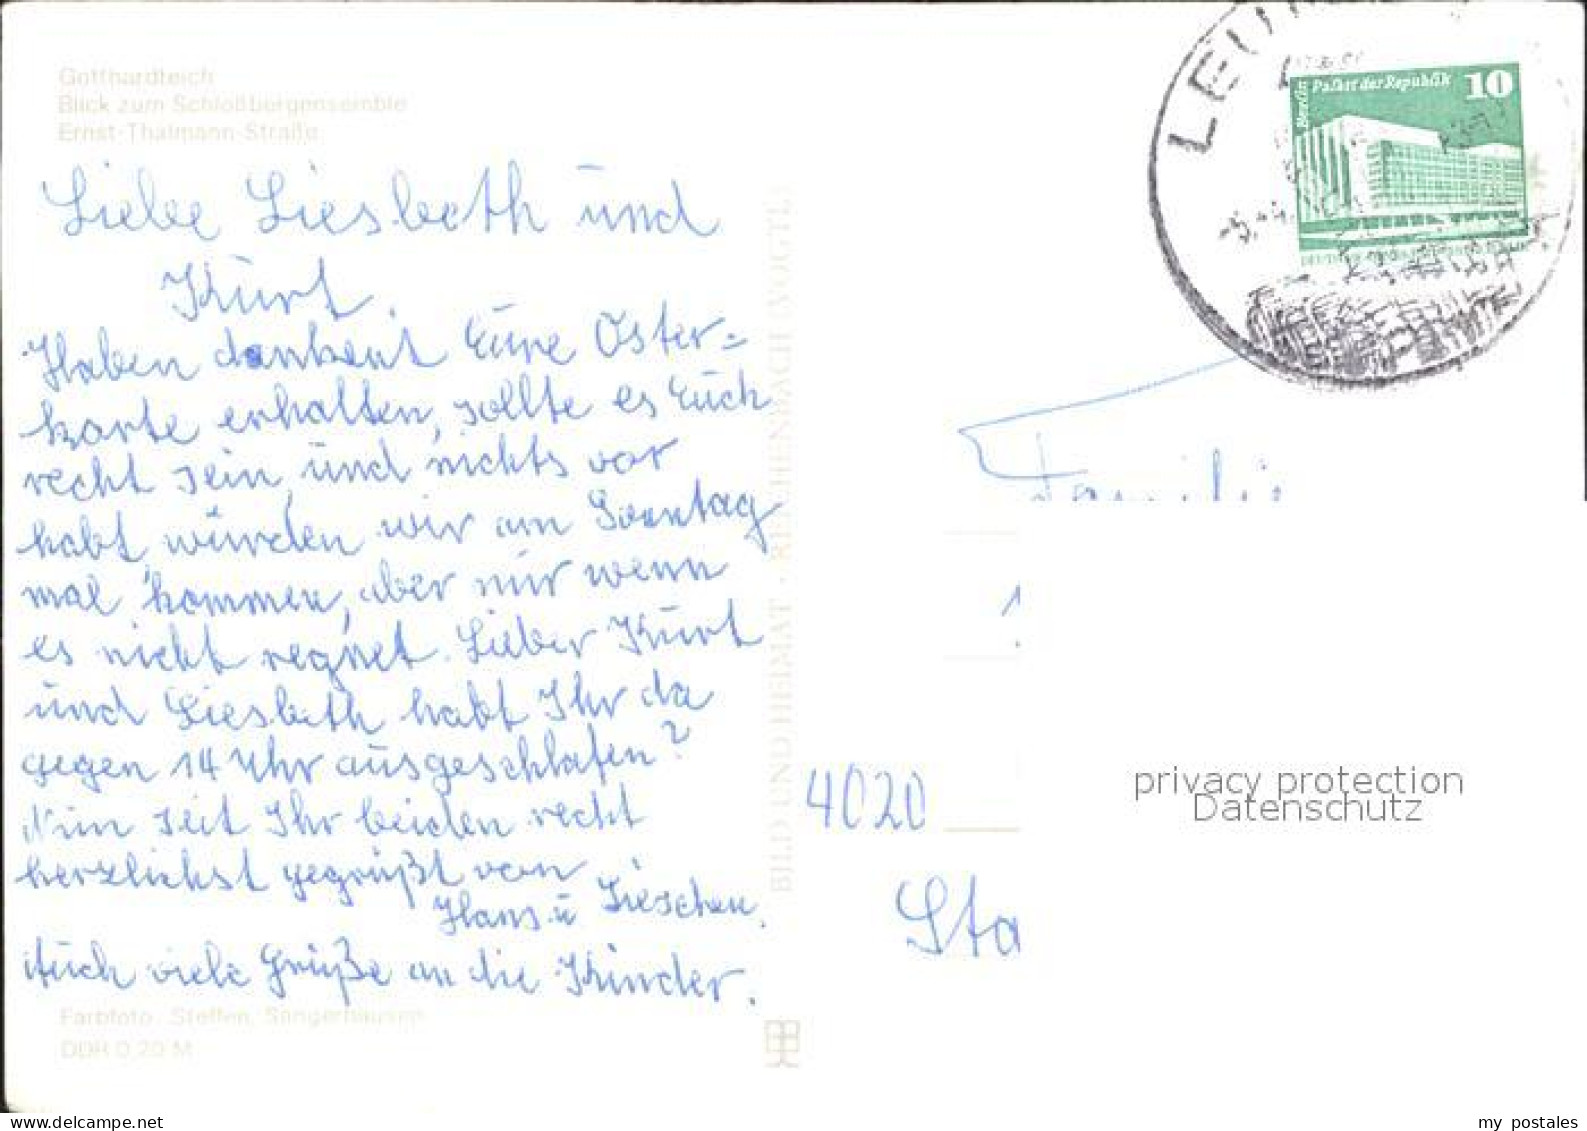 Gotthardteich
Blick zum Schloßbergensemble
Ernst-Thälmann-Straße
Liebe Liesbeth und
Kurt.
Haben dankent Eure Oster=
karte erhalten, sollte es Euch
recht sein, und nichts vor
habt würden wir am Sonntag
mal kommen, aber nur wenn
es nicht regnet. Lieber Kurt
und Liesbeth habt Ihr da
gegen 14 Uhr ausgeschlafen?
Nun seit Ihr beiden recht
herzlichst gegrüßt von
Hans u Lieschen.
Auch viele Grüße an die Kinder.
Farbfoto: Steffen, Sangerhausen
DDR 0,20 M
BILD UND HEIMAT · REICHENBACH VOGTL
LEUNA
Berlin Palast der Republik 10
Familie
4020
Sta
privacy protection
Datenschutz
delcampe.net
my postales